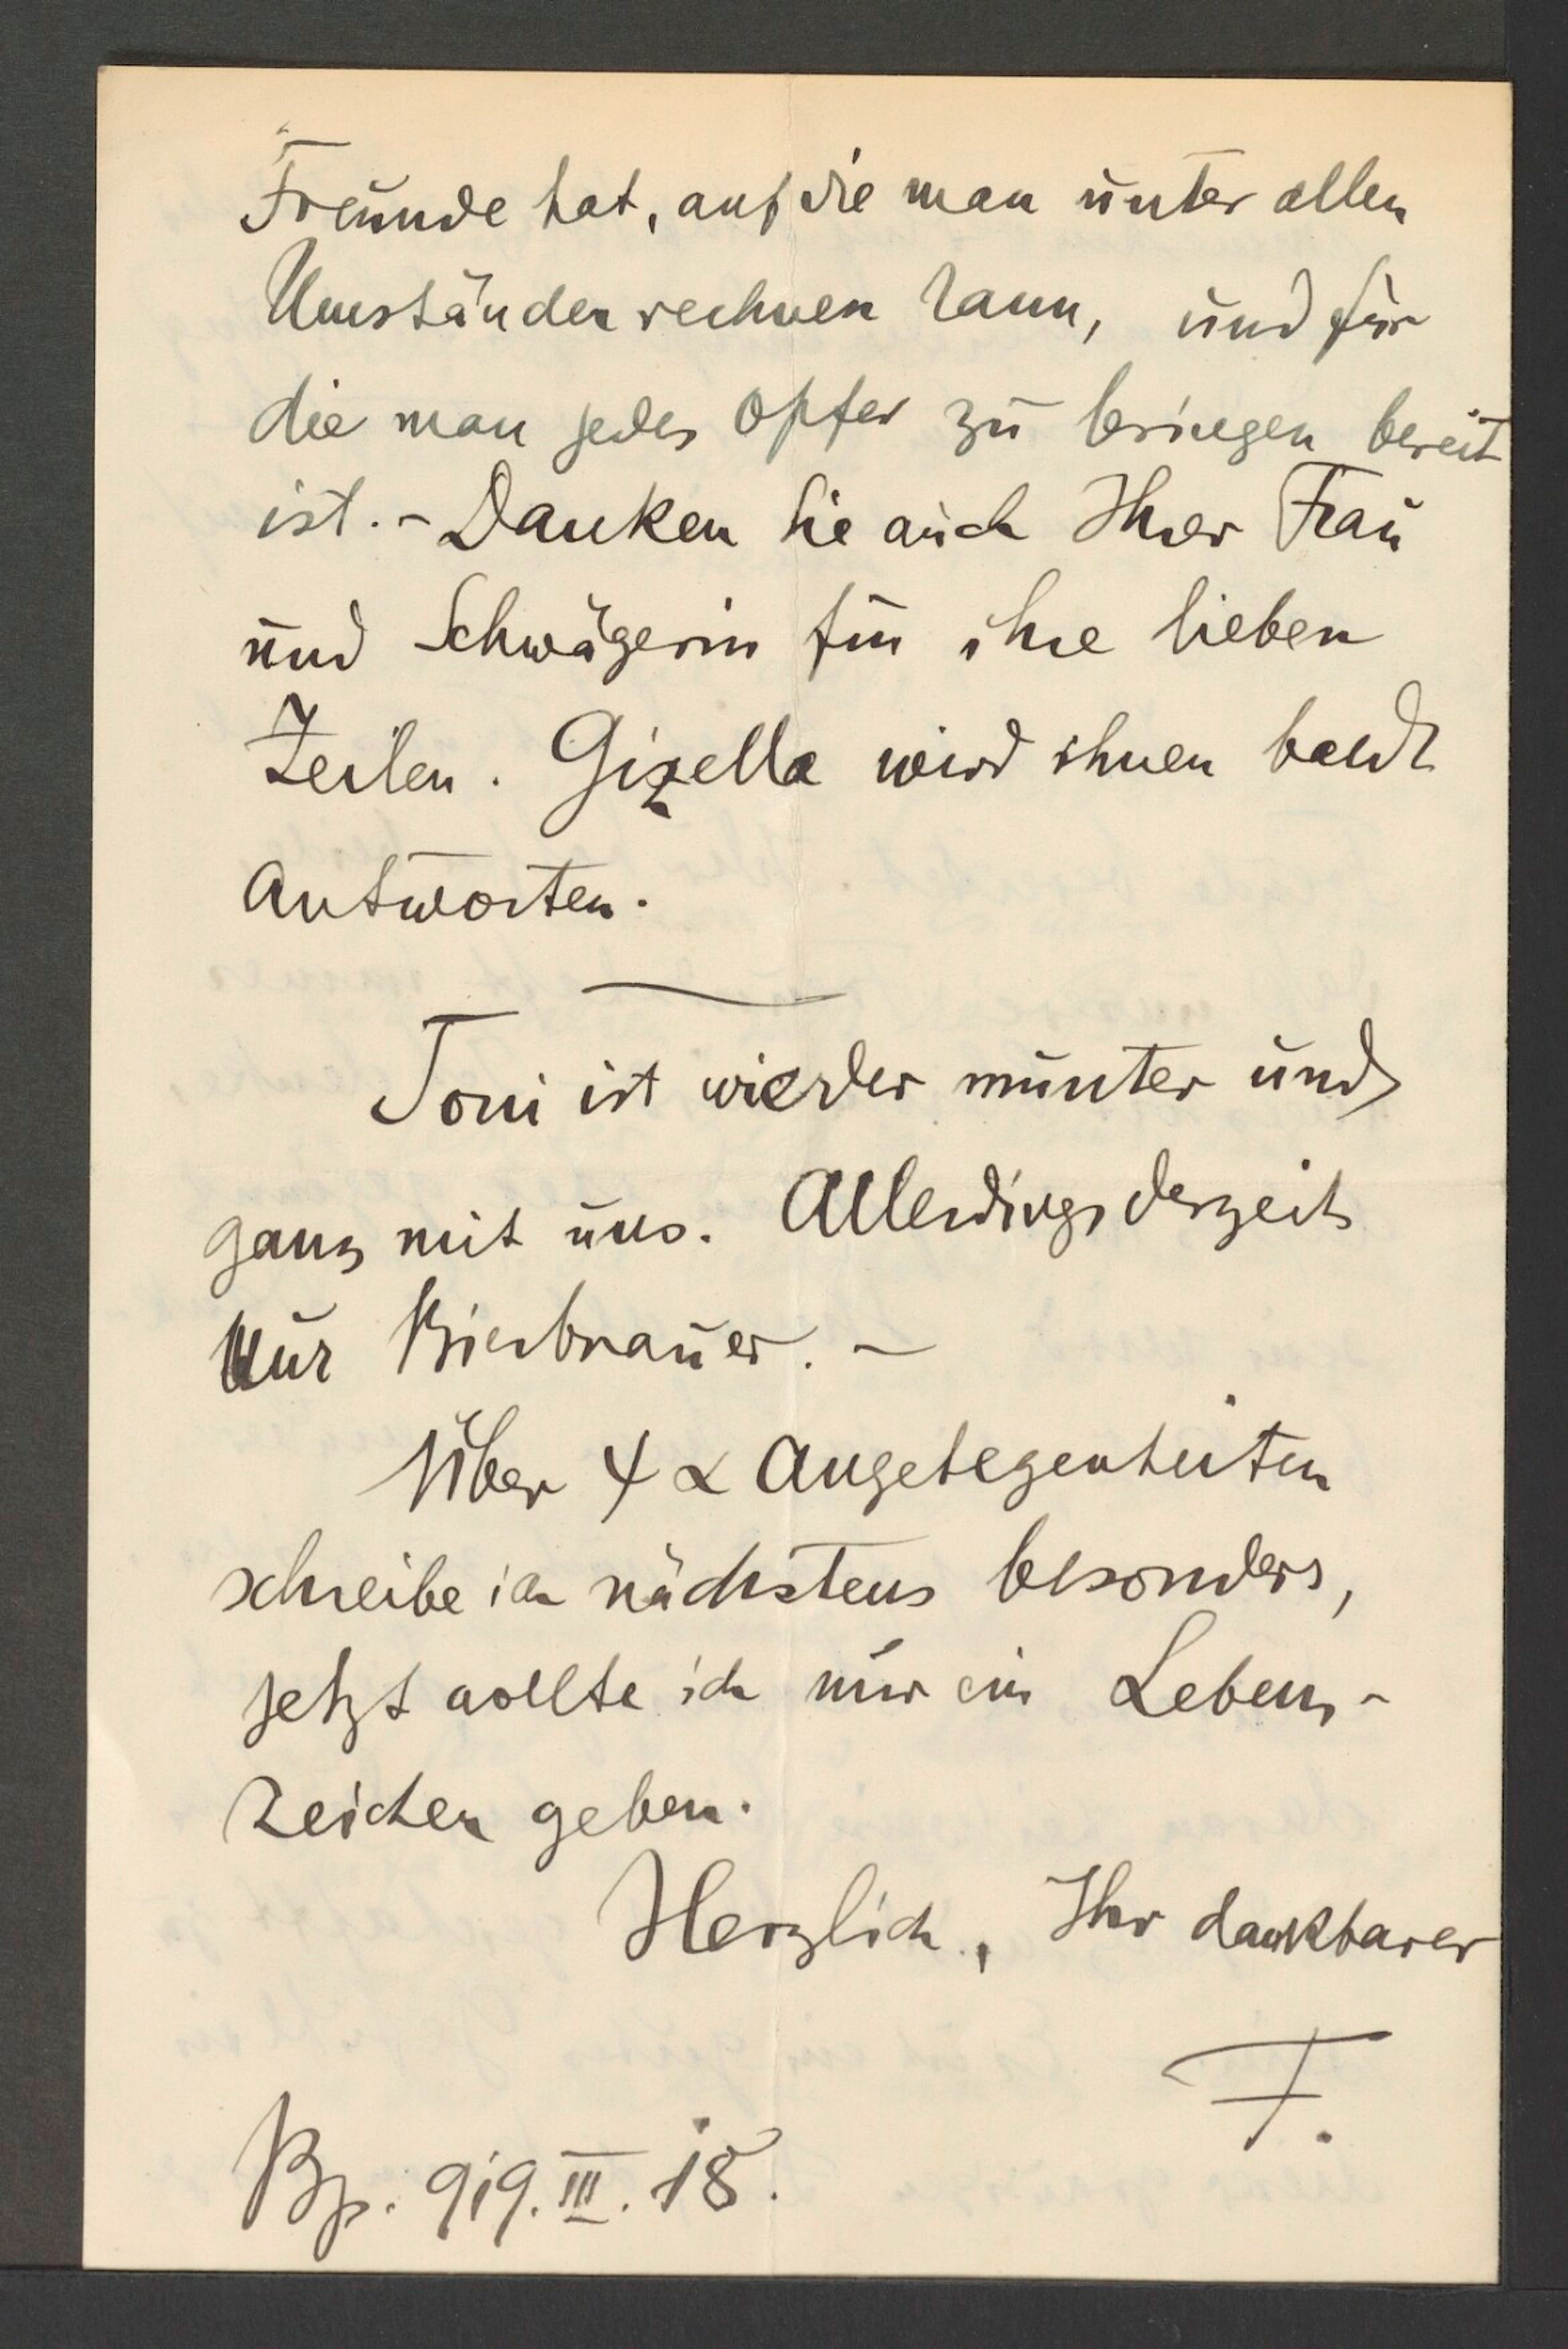 Freunde hat, auf die man unter allen
Umständen rechnen kann, und für
die man jedes Opfer zu bringen bereit
ist. - Danken Sie auch Ihrer Frau
und Schwägerin für ihre lieben
Zeilen. Gizella wird ihnen bald
antworten.
Toni ist wieder munter und
ganz mit uns. Allerdings derzeit
nur Bierbrauer. -
Über Ψα Angelegenheiten
schreibe ich nächstens besonders,
jetzt wollte ich nur ein Lebens-
zeichen geben.
Herzlich, Ihr dankbarer
F.
Bp. 919. III. 18.